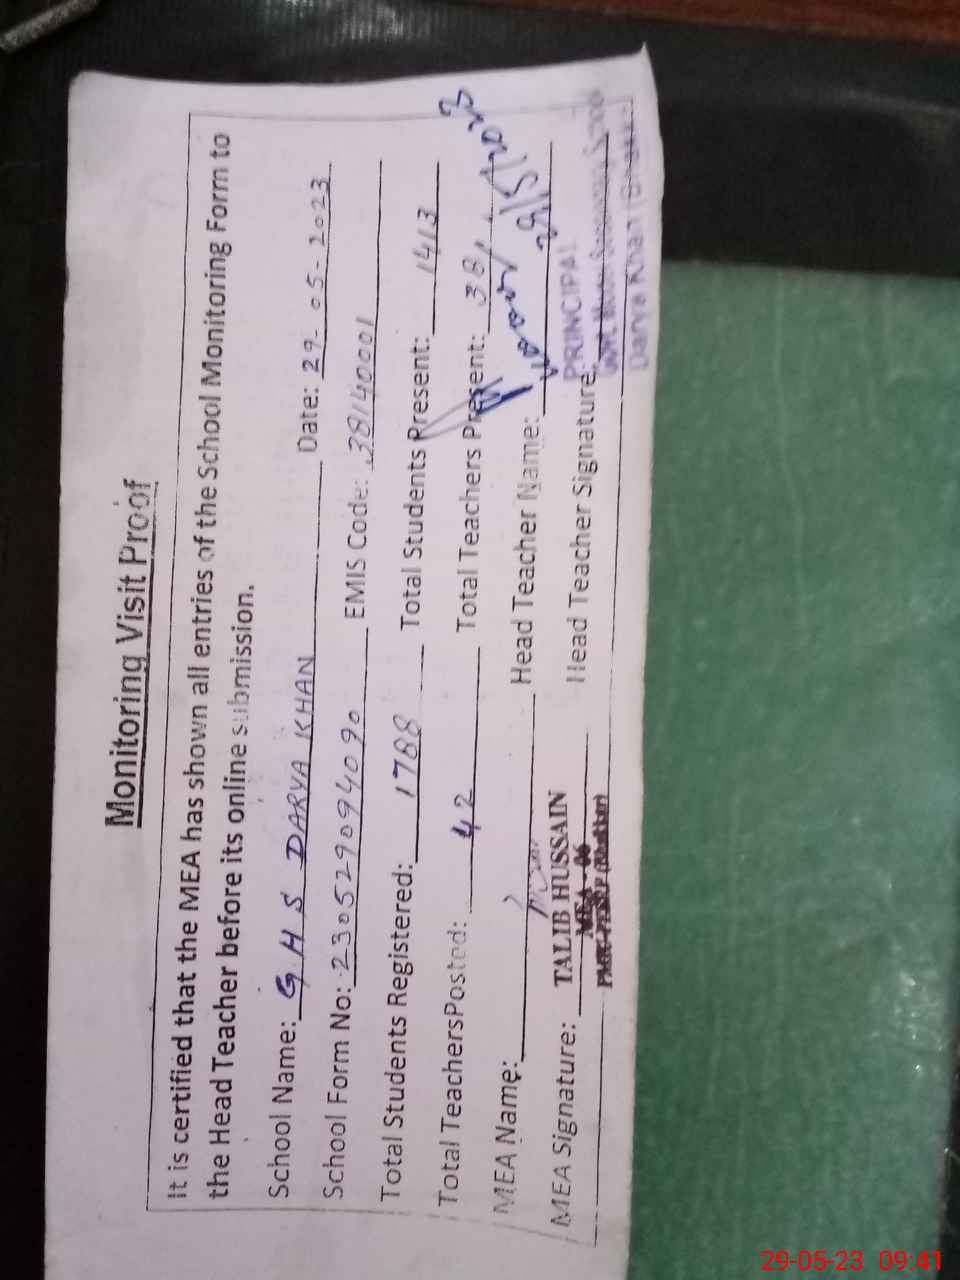 Monitoring Visit Proof
It is certified that the MEA has shown all entries of the School Monitoring Form to
the Head Teacher before its online submission.
School Name: G H S DARYA KHAN Date: 29-05-2023
School Form No: 230529094090 EMIS Code: 38140001
Total Students Registered: 1788 Total Students Present: 1413
Total TeachersPosted: 42 Total Teachers Present: 38
MEA Name: Head Teacher Name:
29/5/2023
MEA Signature: TALIB HUSSAIN Head Teacher Signature:
MEA - 06
PRINCIPAL
Darya Khan
29-05-23 09:41